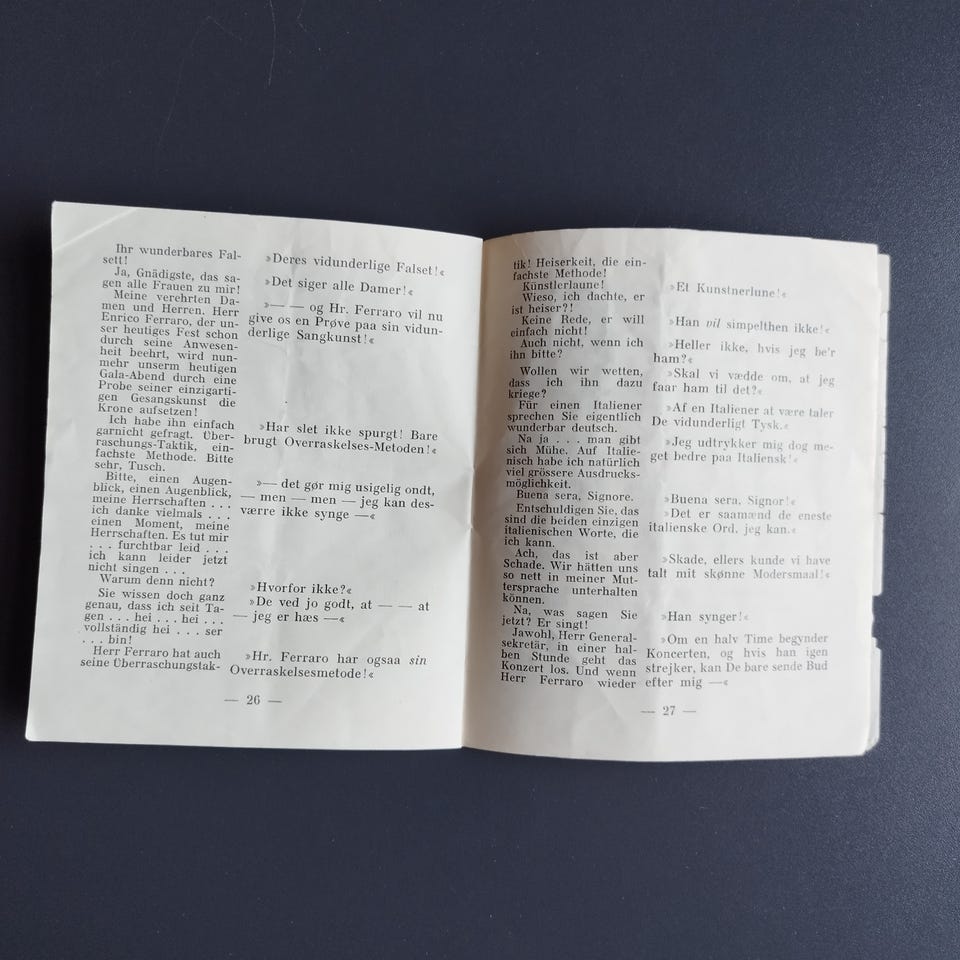 Ihr wunderbares Fal-
sett!
Ja, Gnädigste, das sa-
gen alle Frauen zu mir!
Meine verehrten Da-
men und Herren. Herr
Enrico Ferraro, der un-
ser heutiges Fest schon
durch seine Anwesen-
heit beehrt, wird nun-
mehr unserm heutigen
Gala-Abend durch eine
Probe seiner einzigarti-
gen Gesangskunst die
Krone aufsetzen!
Ich habe ihn einfach
garnicht gefragt. Über-
raschungs-Taktik, ein-
fachste Methode. Bitte
sehr, Tusch.
Bitte, einen Augen-
blick, einen Augenblick,
meine Herrschaften . . .
ich danke vielmals . . .
einen Moment, meine
Herrschaften. Es tut mir
. . . furchtbar leid . . .
ich kann leider jetzt
nicht singen . . .
Warum denn nicht?
Sie wissen doch ganz
genau, dass ich seit Ta-
gen . . . hei . . . hei . . .
vollständig hei . . . ser
. . . bin!
Herr Ferraro hat auch
seine Überraschungstak-
»Deres vidunderlige Falset!«
»Det siger alle Damer!«
»— — og Hr. Ferraro vil nu
give os en Prøve paa sin vidun-
derlige Sangkunst!«
»Har slet ikke spurgt! Bare
brugt Overraskelses-Metoden!«
»— det gør mig usigelig ondt,
— men — men — jeg kan des-
værre ikke synge —«
»Hvorfor ikke?«
»De ved jo godt, at — — at
— jeg er hæs —«
»Hr. Ferraro har ogsaa sin
Overraskelsesmetode!«
— 26 —
tik! Heiserkeit, die ein-
fachste Methode!
Künstlerlaune!
Wieso, ich dachte, er
ist heiser?!
Keine Rede, er will
einfach nicht!
Auch nicht, wenn ich
ihn bitte?
Wollen wir wetten,
dass ich ihn dazu
kriege?
Für einen Italiener
sprechen Sie eigentlich
wunderbar deutsch.
Na ja . . . man gibt
sich Mühe. Auf Italie-
nisch habe ich natürlich
viel grössere Ausdrucks-
möglichkeit.
Buena sera, Signore.
Entschuldigen Sie, das
sind die beiden einzigen
italienischen Worte, die
ich kann.
Ach, das ist aber
Schade. Wir hätten uns
so nett in meiner Mut-
tersprache unterhalten
können.
Na, was sagen Sie
jetzt? Er singt!
Jawohl, Herr General-
sekretär, in einer hal-
ben Stunde geht das
Konzert los. Und wenn
Herr Ferraro wieder
»Et Kunstnerlune!«
»Han vil simpelthen ikke!«
»Heller ikke, hvis jeg be'r
ham?«
»Skal vi vædde om, at jeg
faar ham til det?«
»Af en Italiener at være taler
De vidunderligt Tysk.«
»Jeg udtrykker mig dog me-
get bedre paa Italiensk!«
»Buena sera, Signor!«
»Det er saamænd de eneste
italienske Ord, jeg kan.«
»Skade, ellers kunde vi have
talt mit skønne Modersmaal!«
»Han synger!«
»Om en halv Time begynder
Koncerten, og hvis han igen
strejker, kan De bare sende Bud
efter mig —«
— 27 —